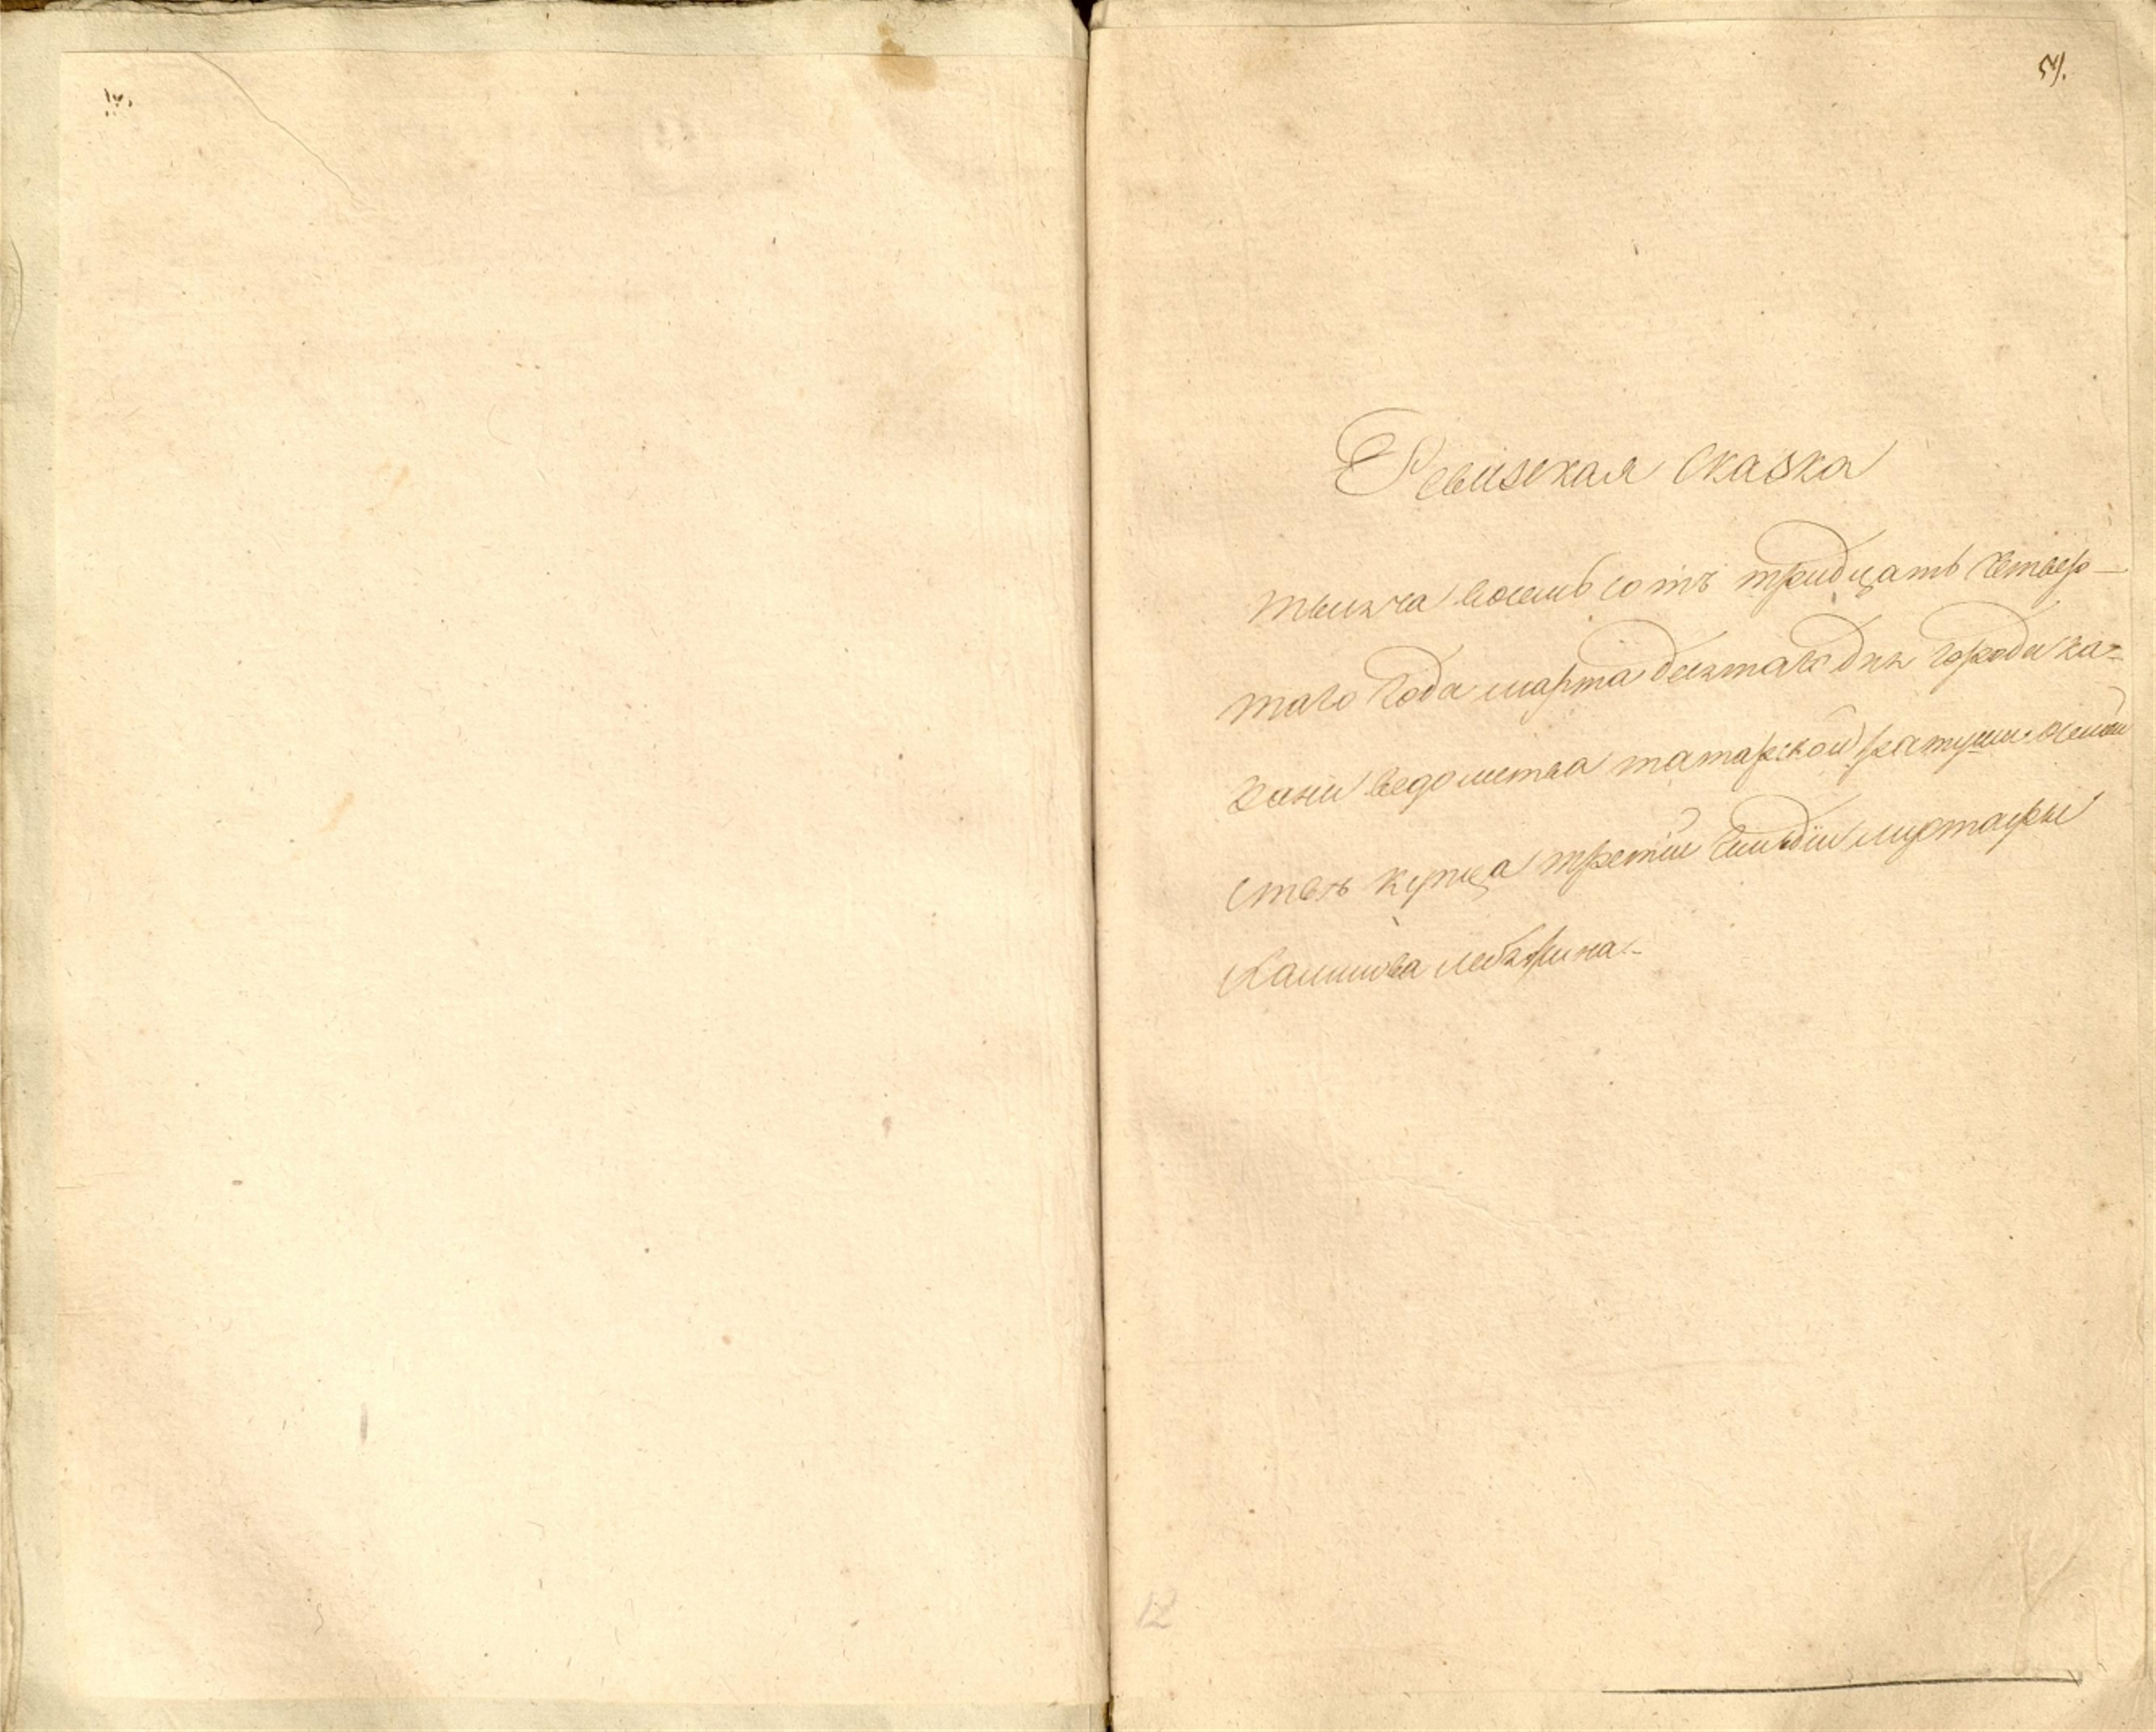 Ревизская Сказка
тысяча восемь сотъ тридцать четвер-
таго года марта десятаго дня города ка=
зани ведомства татарской ратуши о семей
стве купца третей гильдии мустафы
12